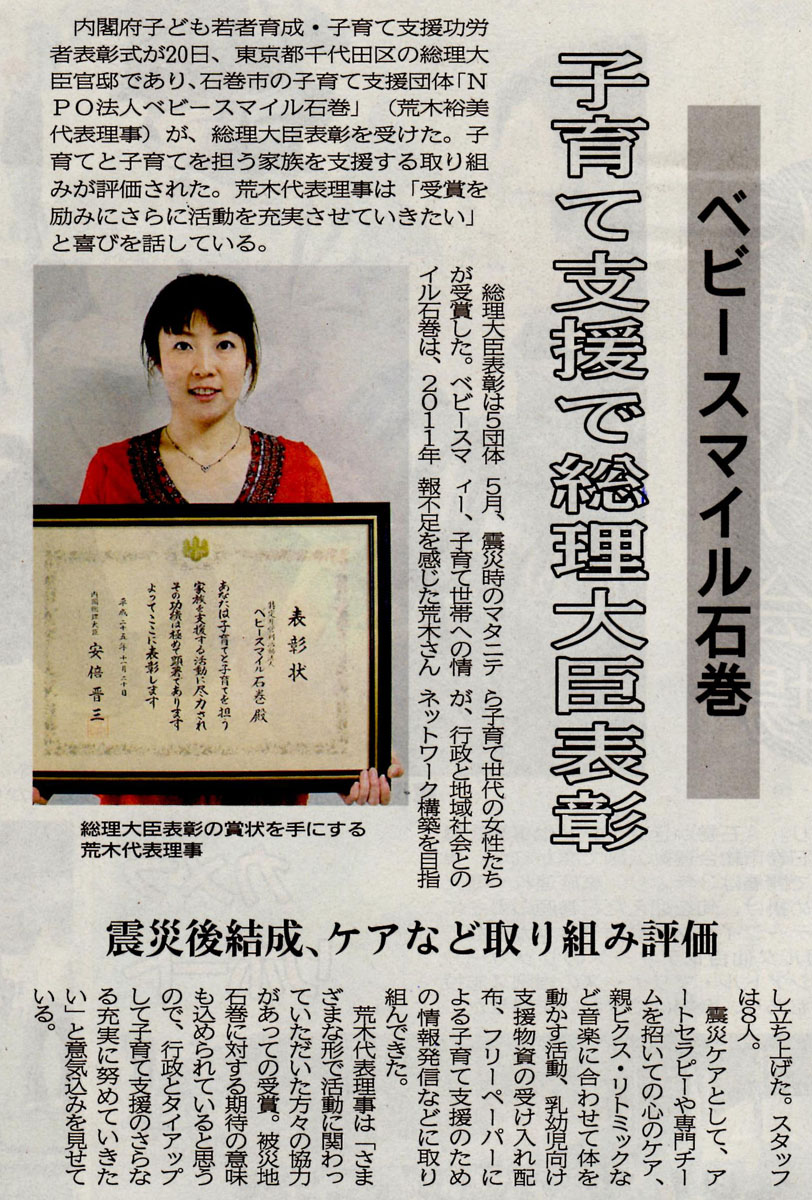 ベビースマイル石巻
子育て支援で総理大臣表彰
内閣府子ども若者育成・子育て支援功労
者表彰式が20日、東京都千代田区の総理大
臣官邸であり、石巻市の子育て支援団体「N
PO法人ベビースマイル石巻」（荒木裕美
代表理事）が、総理大臣表彰を受けた。子
育てと子育てを担う家族を支援する取り組
みが評価された。荒木代表理事は「受賞を
励みにさらに活動を充実させていきたい」
と喜びを話している。
総理大臣表彰は5団体
が受賞した。ベビースマ
イル石巻は、2011年
5月、震災時のマタニテ
ィー、子育て世帯への情
報不足を感じた荒木さん
ら子育て世代の女性たち
が、行政と地域社会との
ネットワーク構築を目指
表彰状
特定非営利活動法人
ベビースマイル石巻 殿
あなたは子育てと子育てを担う
家族を支援する活動に尽力され
その功績は極めて顕著であります
よってここに表彰します
平成二十五年十一月二十日
内閣総理大臣 安倍晋三
総理大臣表彰の賞状を手にする
荒木代表理事
震災後結成、ケアなど取り組み評価
し立ち上げた。スタッフ
は8人。
震災ケアとして、ア
ートセラピーや専門チー
ムを招いての心のケア、
親ビクス・リトミックな
ど音楽に合わせて体を
動かす活動、乳幼児向け
支援物資の受け入れ配
布、フリーペーパーに
よる子育て支援のため
の情報発信などに取り
組んできた。
荒木代表理事は「さま
ざまな形で活動に関わっ
ていただいた方々の協力
があっての受賞。被災地
石巻に対する期待の意味
も込められていると思う
ので、行政とタイアップ
して子育て支援のさらな
る充実に努めていきた
い」と意気込みを見せて
いる。